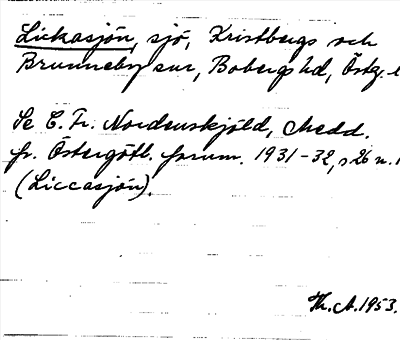 Lickasjön, sjö, Kristbergs och
Brunneby snr, Bobergs hd, Östg. l
Se C. Fr. Nordenskjöld, Medd.
fr. Östergötl. fornm. 1931-32, s 26 n. 1
(Liccasjön).
Th. A. 1953.